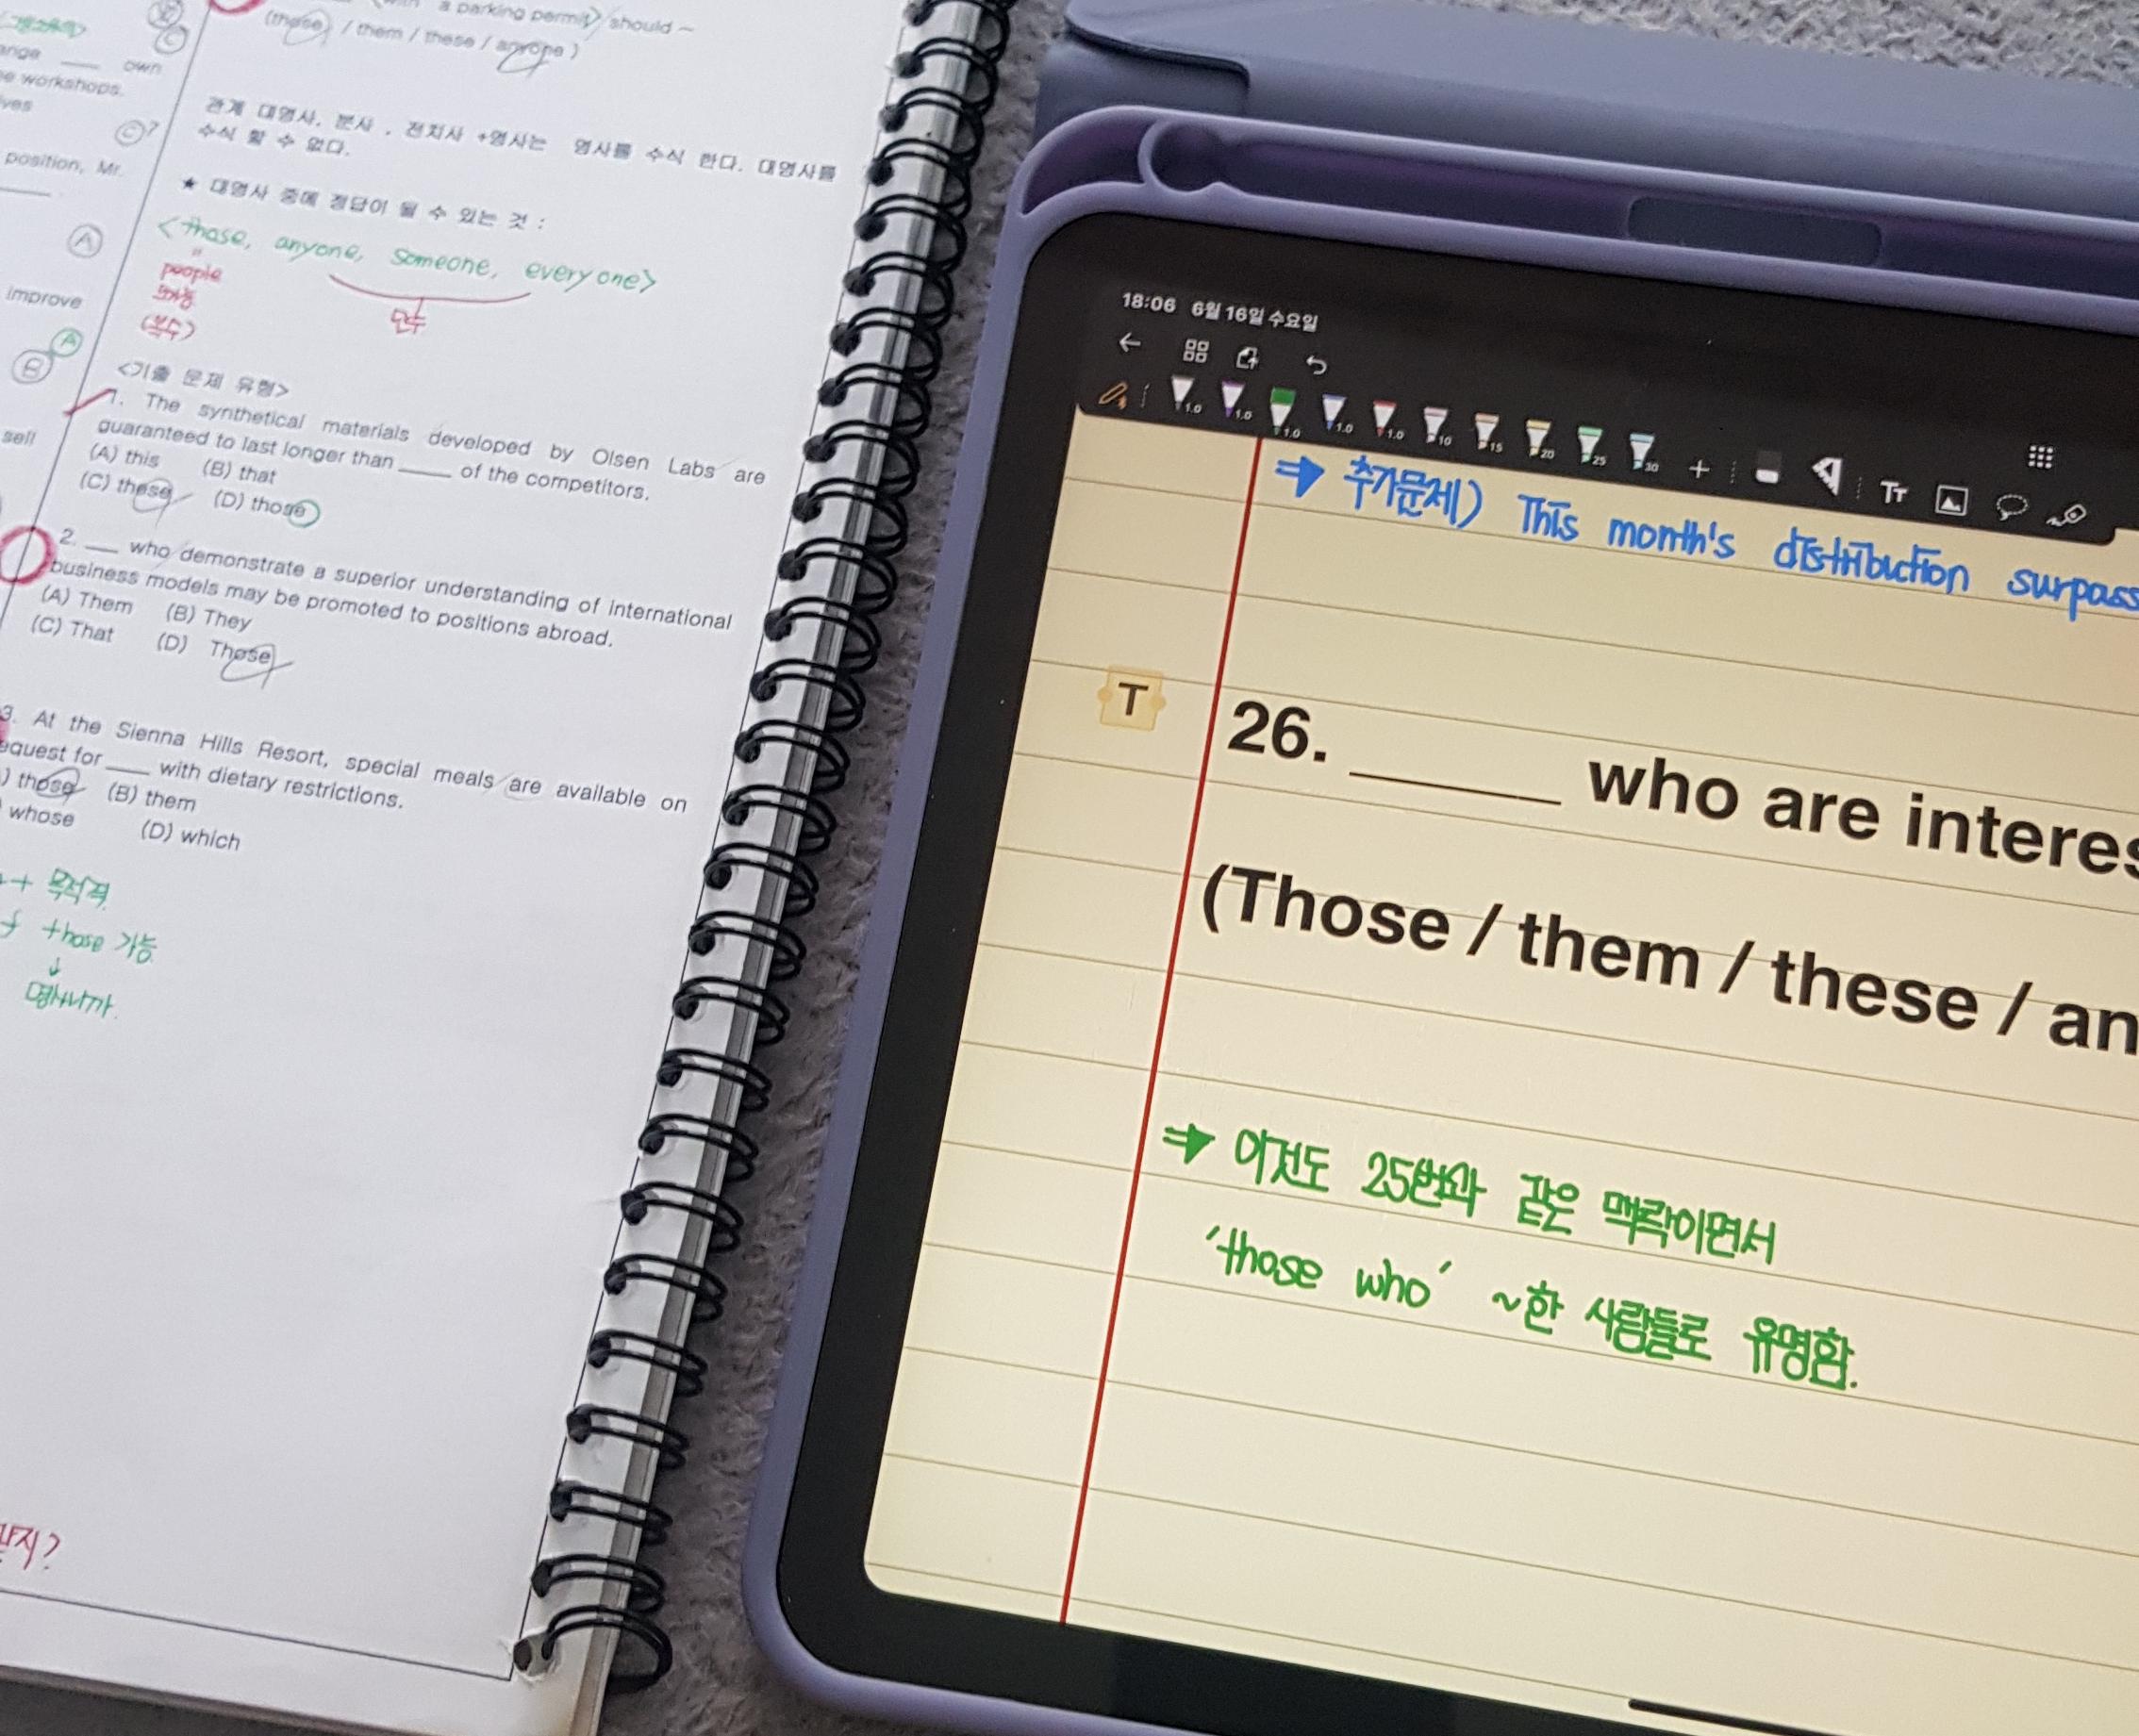 ange ___ own
workshops.
position, Mr.
improve
sell
Ⓒ?
Ⓐ
Ⓐ
Ⓑ
a parking permit> should ~
(those / them / these / anyone )
관계 대명사, 분사 , 전치사 +명사는 명사를 수식 한다. 대명사를
수식 할 수 없다.
★ 대명사 중에 정답이 될 수 있는 것 :
<those, anyone, someone, everyone>
people
(복수)
단수
<기출 문제 유형>
1. The synthetical materials developed by Olsen Labs are
guaranteed to last longer than ____ of the competitors.
(A) this (B) that
(C) these (D) those
2. ___ who demonstrate a superior understanding of international
business models may be promoted to positions abroad.
(A) Them (B) They
(C) That (D) Those
3. At the Sienna Hills Resort, special meals are available on
equest for ____ with dietary restrictions.
) those (B) them
whose (D) which
+ 목적격
those 가능
↓
명사니까.
18:06 6월 16일 수요일
1.0 1.0 1.0 1.0 1.0 10 15 20 25 30
⇒ 추가문제) This month's distribution surpass
T
26. _____ who are interes
(Those / them / these / an
⇒ 이것도 25번과 같은 맥락이면서
'those who' ~한 사람들로 유명함.